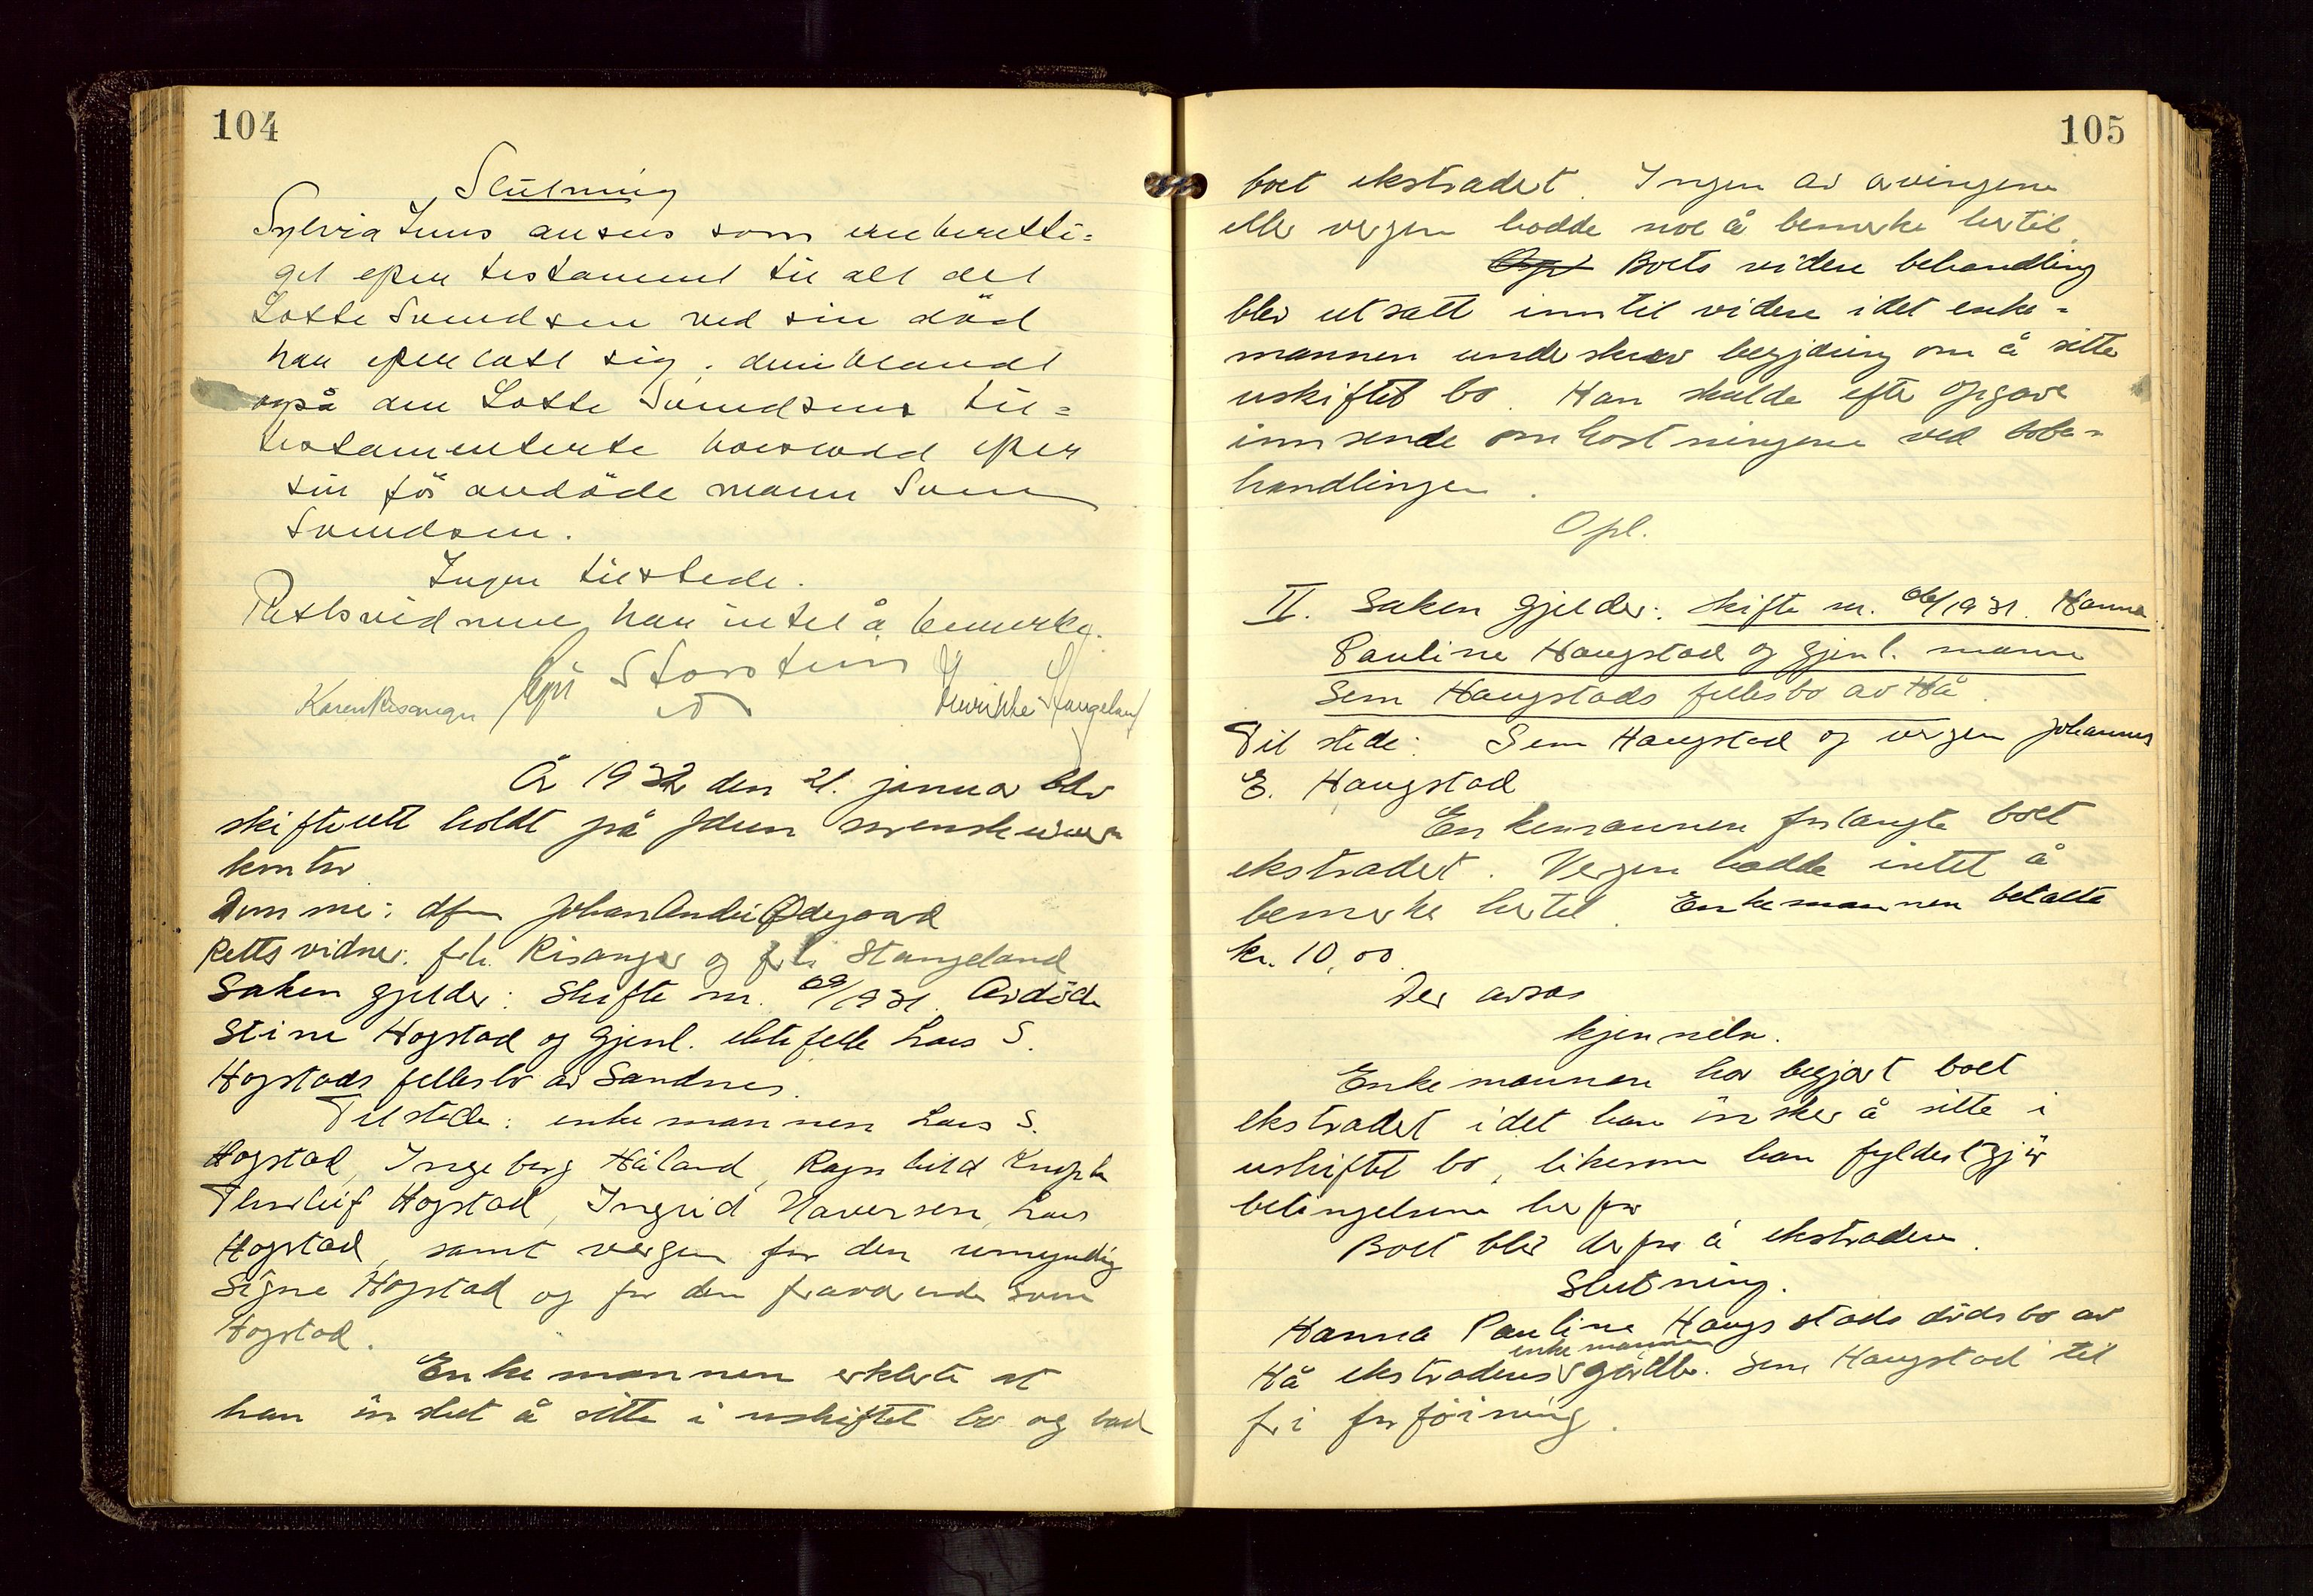 104
Slutning
Sylvia Juus ansees som eneberetti-
get efter testament til alt det
Lotte Svendsen ved sin död
har efterlatt sig, deriblandt
også den Lotte Svendsens til-
testamenterte boeslodd efter
sin før avdöde mann Sven
Svendsen.
Ingen tilstede.
Rettsvidnene har intet å bemerke.
Storstein
Karen Risanger
Henrikke Stangeland
År 1932 den 21. januar blev
skifterett holdt på Jæren sorenskriver-
kontor
Dommer: dfm Johan André Ødegaard
Rettsvidner: frk. Risanger og frk Stangeland
Saken gjelder: Skifte nr. 69/1931. Avdöde
Stine Hogstad og gjenl. ektefelle Lars S.
Hogstads fellesbo av Sandnes.
Tilstede: enkemannen Lars S.
Hogstad, Ingeborg Håland, Ragnhild
Hogstad, Ingrid Haversen, Lars
Hogstad, samt vergen for den umyndig
Signe Hogstad og for den fraværende Sven
Hogstad.
Enkemannen erklærte at
han önsket å sitte i uskiftet bo og bad
105
boet ekstradert. Ingen av arvingene
eller vergen hadde noe å bemerke hertil.
Opl Boets videre behandling
blev utsatt inntil videre idet enke-
mannen underskrev begjæring om å sitte
uskiftet bo. Han skulde efter opgave
innsende omkostningene ved bobe-
handlingen.
Opl.
II. Saken gjelder: skifte nr. 66/1931. Hanna
Pauline Haugstad og gjenl. mann
Sem Haugstads fellesbo av Hå.
Til stede: Sem Haugstad og vergen Johannes
E. Haugstad
Enkemannen forlangte boet
ekstradert. Vergen hadde intet å
bemerke hertil. Enkemannen betalte
kr. 10,00.
Der avsas
kjennelse.
Enkemannen har begjært boet
ekstradert idet han önsker å sitte i
uskiftet bo, likesom han fyldestgjör
betingelsene herfor
Boet blir derfor å ekstradere.
Slutning.
Hanna Pauline Haugstads dödsbo av
Hå ekstraderes enkemannen gårdbr. Sem Haugstad til
fri forföining.